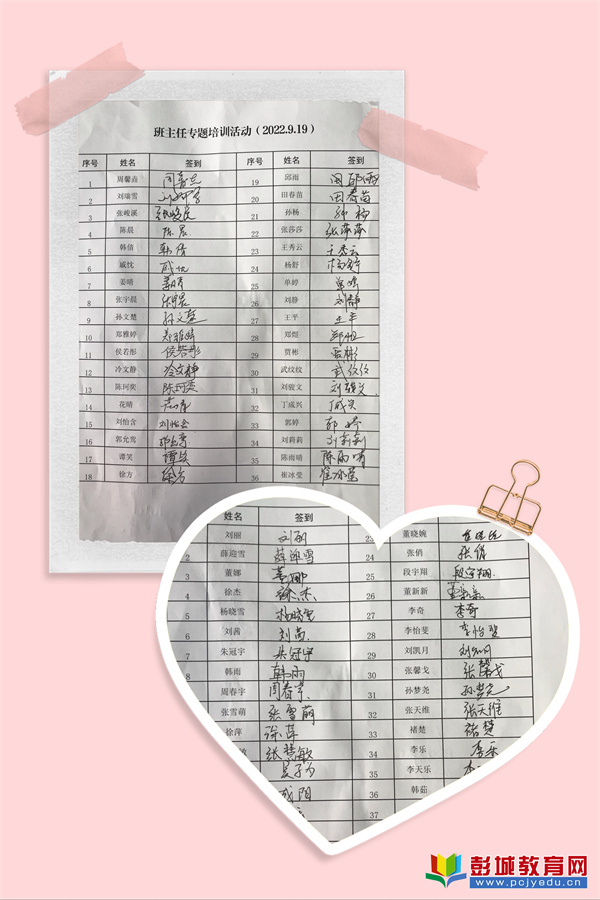 班主任专题培训活动（2022.9.19）
序号 姓名 签到 序号 姓名 签到
1 周馨垚 19 邱雨
2 刘瑞雪 20 田春苗 田春苗
3 张峻溪 21 孙杨 孙杨
4 陈晨 陈晨 22 张莎莎 张莎莎
5 韩倩 韩倩 23 王秀云 王秀云
6 戚忱 戚忱 24 杨舒 杨舒
7 姜晴 姜晴 25 单婷 单婷
8 张宇晨 26 刘静 刘静
9 孙文楚 孙文楚 27 王平 王平
10 郑雅婷 郑雅婷 28 郑煜 郑煜
11 侯若彤 侯若彤 29 贾彬 贾彬
12 冷文静 冷文静 30 武纹纹 武纹纹
13 陈珂奕 陈珂奕 31 刘骏文 刘骏文
14 花晴 花晴 32 丁咸兴
15 刘怡含 刘怡含 33 郭婷 郭婷
16 郭允鸾 34 刘莉莉 刘莉莉
17 谭笑 谭笑 35 陈雨晴 陈雨晴
18 徐方 徐方 36 崔冰莹 崔冰莹
姓名 签到
刘丽 刘丽 23 董晓婉
2 薛迎雪 薛迎雪 24 张俏 张俏
3 董娜 董娜 25 段宇翔 段宇翔
4 徐杰 徐杰 26 董新新
5 杨晓雪 杨晓雪 27 李奇 李奇
6 刘茜 28 李怡斐 李怡斐
7 朱冠宇 朱冠宇 29 刘凯月 刘凯月
8 韩雨 韩雨 30 张馨戈 张馨戈
周春宇 周春宇 31 孙梦尧 孙梦尧
张雪萌 张雪萌 32 张天维 张天维
徐萍 徐萍 33 褚楚 褚楚
张慧敏 34 李乐 李乐
35 李天乐
咸阳 36 韩茹
37
彭城教育网
www.pcjyedu.cn